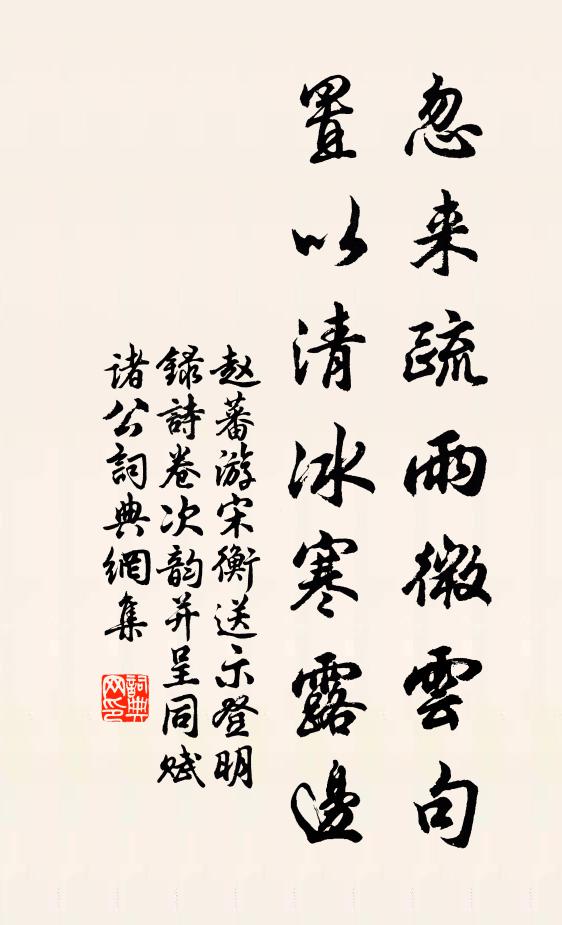 忽来疏雨微雲句
置以清冰寒露邊
赵蕃游宋衡送示登明
録詩卷次韵并呈同赋
诸公詞典網集
詞典网印